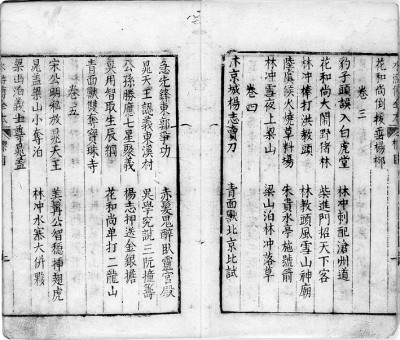 花和尚倒拔垂楊柳
卷三
豹子頭誤入白虎堂 林冲刺配滄州道
花和尚大鬧野猪林 柴進門招天下客
林冲棒打洪教頭 林教頭風雪山神廟
陸虞候火燒草料場 朱貴水亭施號箭
林冲雪夜上梁山 梁山泊林冲落草
卷四
汴京城楊志賣刀 青面獸北京比試
急先鋒東郭爭功 赤髮鬼醉臥靈官殿
晁天王認義東溪村 吳學究説三阮撞籌
公孫勝應七星聚義 楊志押送金銀擔
吳用智取生辰綱 花和尚单打二龍山
青面獸雙奪寳珠寺
卷五
宋公明私放晁天王 美髯公智穩揷翅虎
晁盖梁山小奪泊 林冲水寨大併夥
梁山泊義士尊晁盖